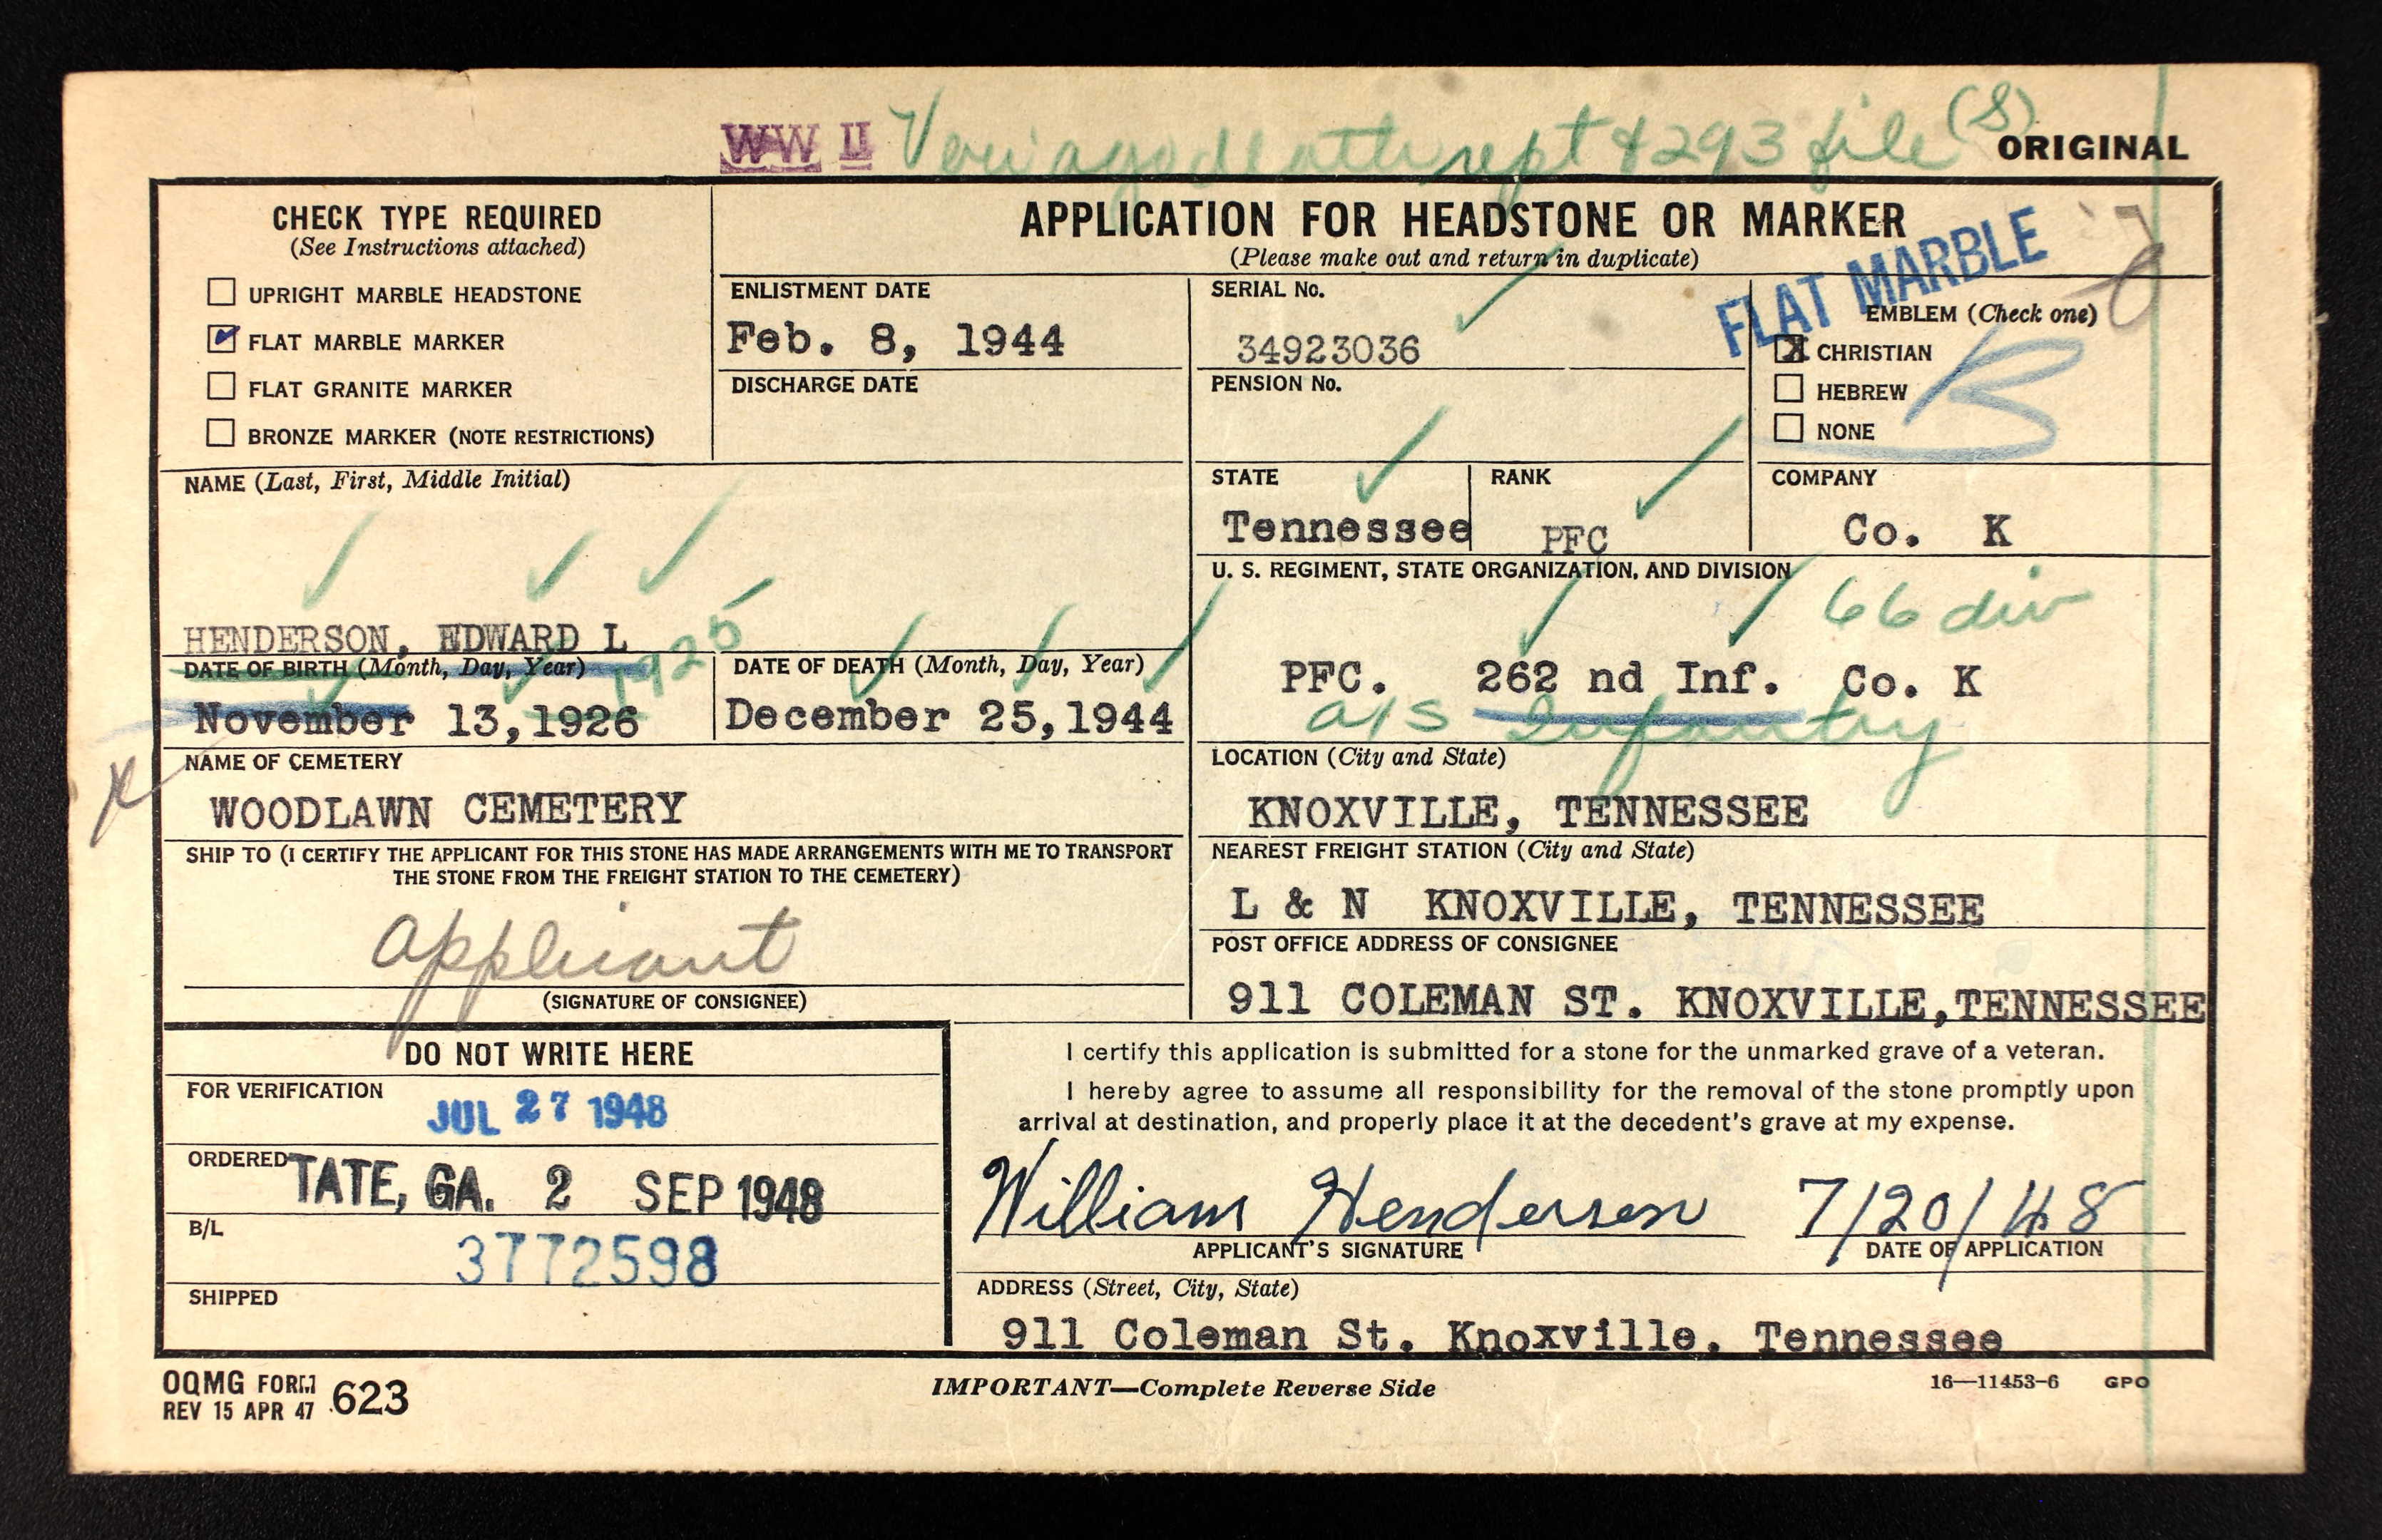 WW II Veri ago death rept & 293 file (S)
ORIGINAL
CHECK TYPE REQUIRED
(See Instructions attached)
UPRIGHT MARBLE HEADSTONE
FLAT MARBLE MARKER
FLAT GRANITE MARKER
BRONZE MARKER (NOTE RESTRICTIONS)
APPLICATION FOR HEADSTONE OR MARKER
(Please make out and return in duplicate)
FLAT MARBLE
ENLISTMENT DATE
Feb. 8, 1944
DISCHARGE DATE
SERIAL No.
34923036
PENSION No.
EMBLEM (Check one)
X CHRISTIAN
HEBREW
NONE
NAME (Last, First, Middle Initial)
HENDERSON, EDWARD L
STATE
Tennessee
RANK
PFC
COMPANY
Co. K
U. S. REGIMENT, STATE ORGANIZATION, AND DIVISION
66 div
PFC. 262 nd Inf. Co. K
a/s Infantry
DATE OF BIRTH (Month, Day, Year)
1925
November 13, 1926
DATE OF DEATH (Month, Day, Year)
December 25, 1944
NAME OF CEMETERY
WOODLAWN CEMETERY
LOCATION (City and State)
KNOXVILLE, TENNESSEE
SHIP TO (I CERTIFY THE APPLICANT FOR THIS STONE HAS MADE ARRANGEMENTS WITH ME TO TRANSPORT
THE STONE FROM THE FREIGHT STATION TO THE CEMETERY)
applicant
(SIGNATURE OF CONSIGNEE)
NEAREST FREIGHT STATION (City and State)
L & N KNOXVILLE, TENNESSEE
POST OFFICE ADDRESS OF CONSIGNEE
911 COLEMAN ST. KNOXVILLE, TENNESSEE
DO NOT WRITE HERE
FOR VERIFICATION
JUL 27 1948
ORDERED
TATE, GA. 2 SEP 1948
B/L
3772598
SHIPPED
I certify this application is submitted for a stone for the unmarked grave of a veteran.
I hereby agree to assume all responsibility for the removal of the stone promptly upon
arrival at destination, and properly place it at the decedent's grave at my expense.
William Henderson 7/20/48
APPLICANT'S SIGNATURE DATE OF APPLICATION
ADDRESS (Street, City, State)
911 Coleman St. Knoxville, Tennessee
OQMG FORM 623
REV 15 APR 47
IMPORTANT—Complete Reverse Side
16—11453-6 GPO